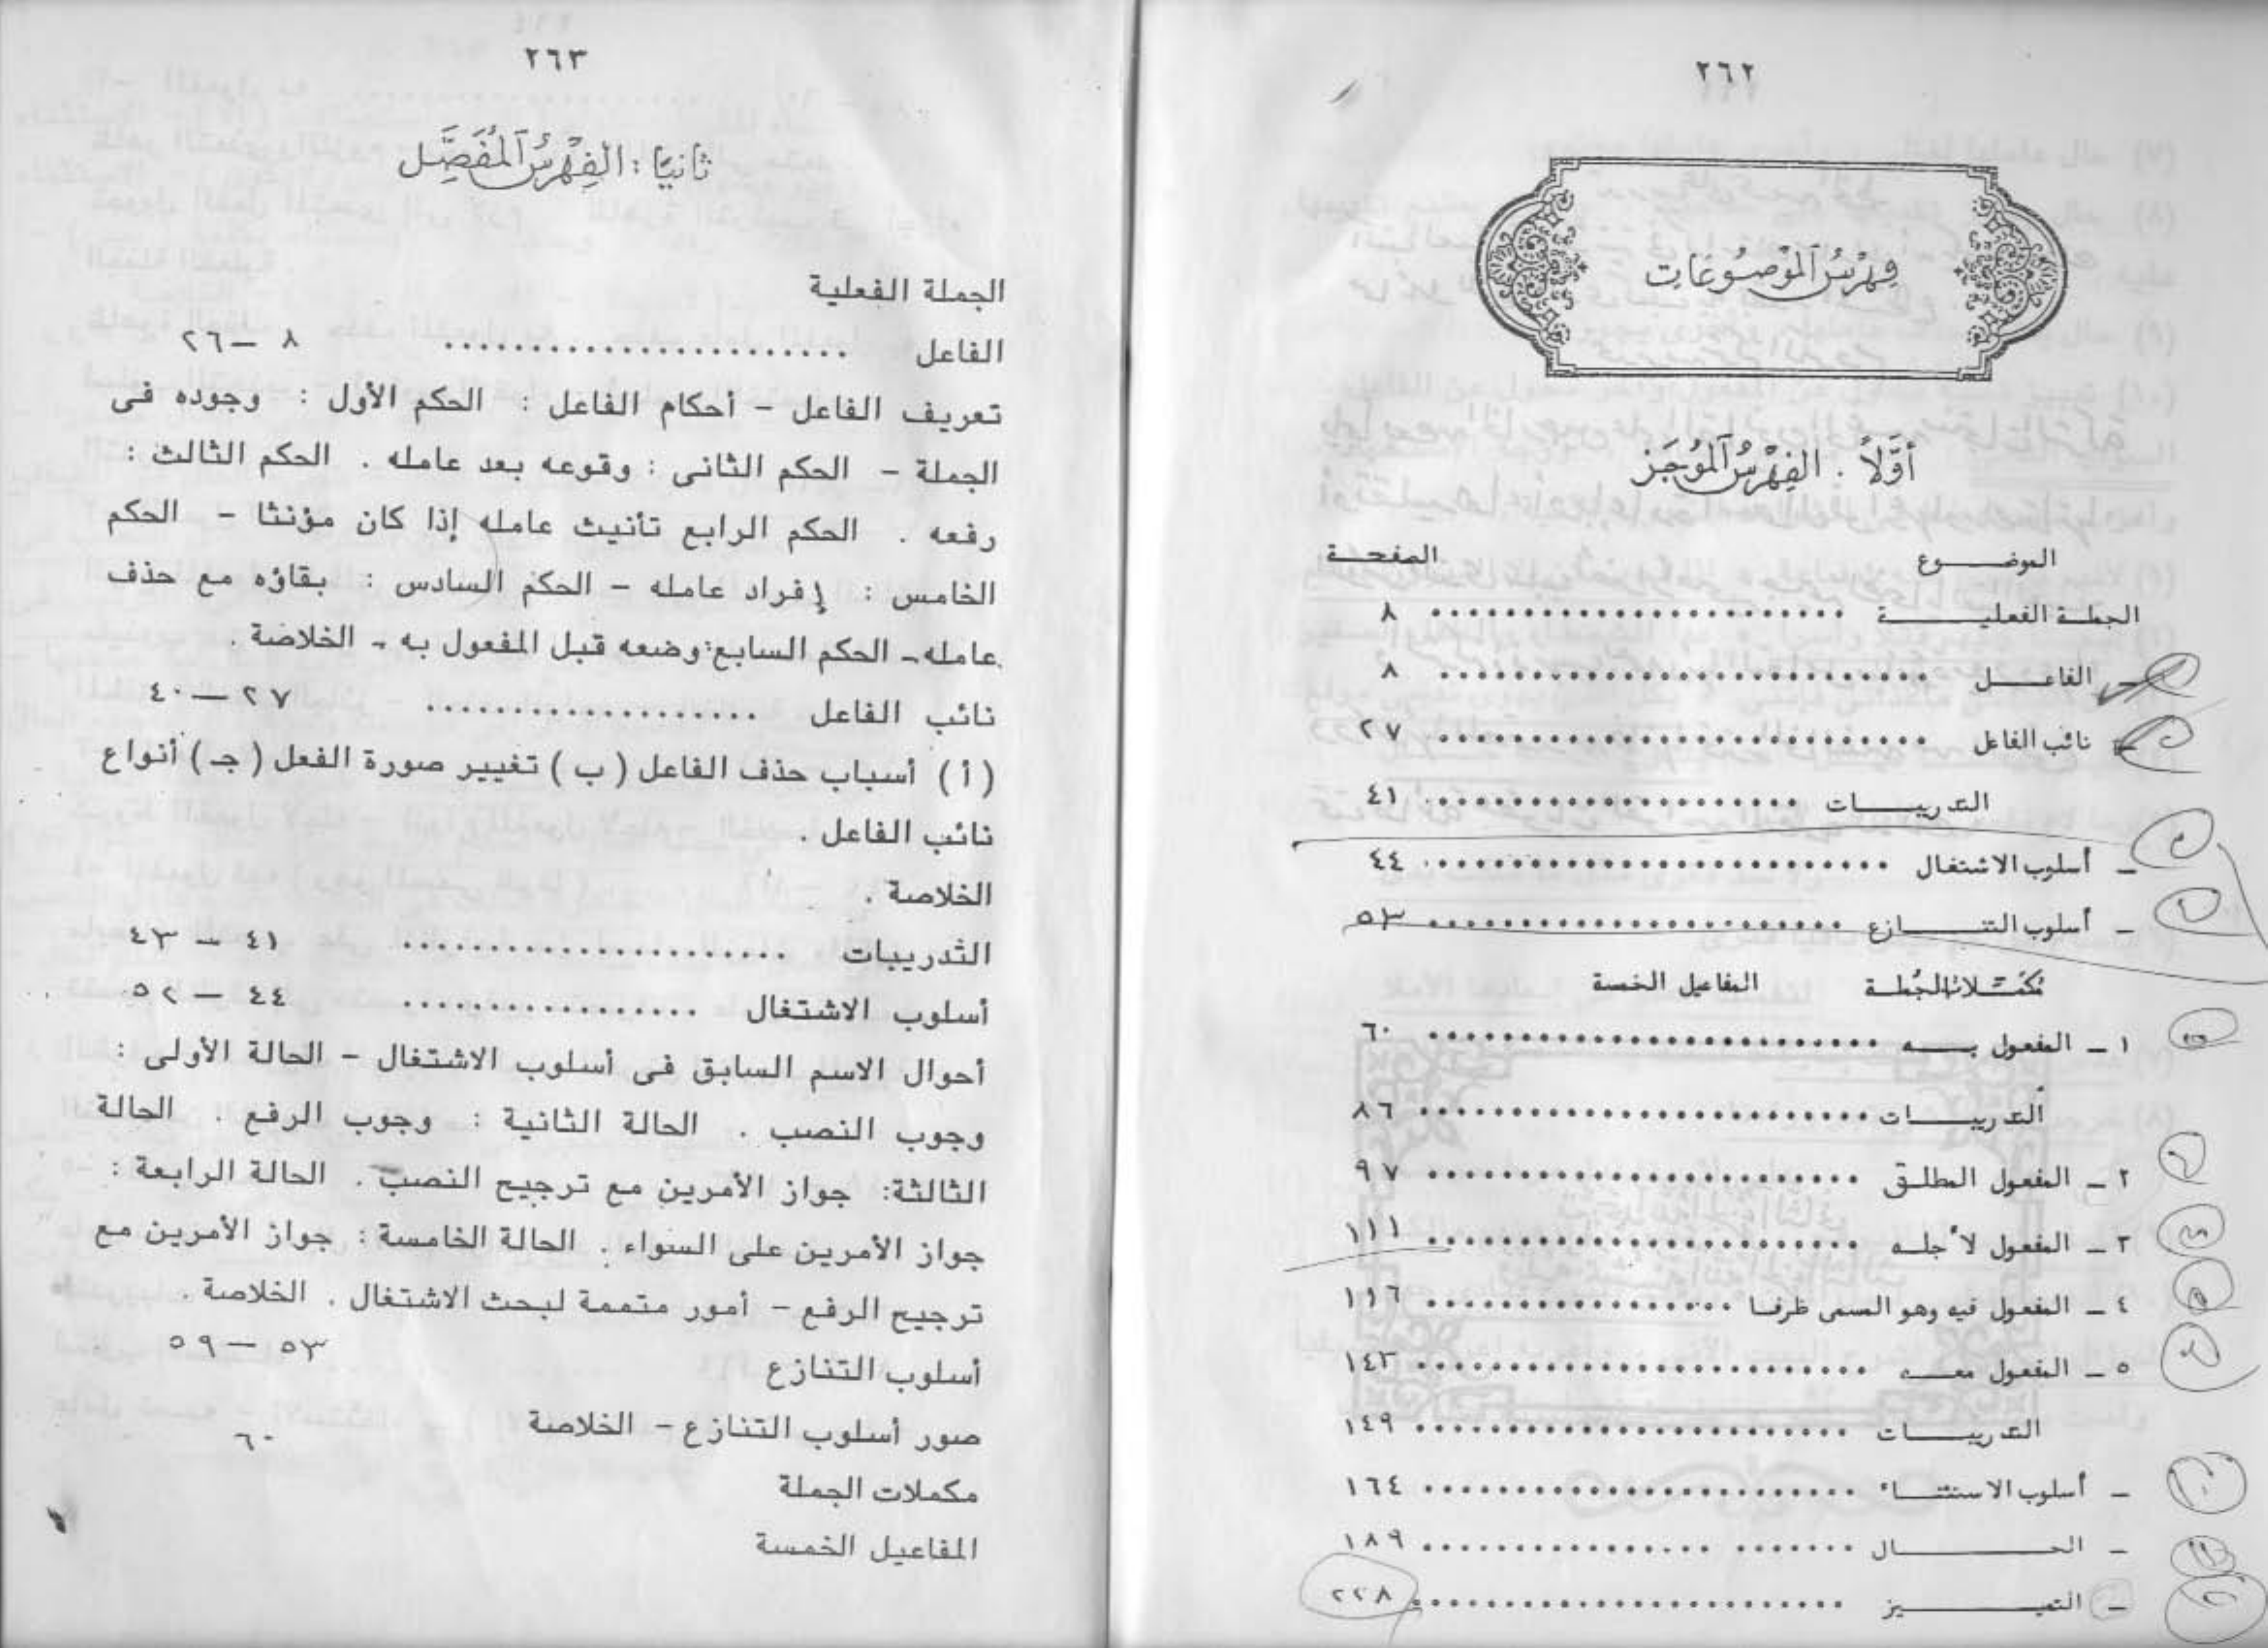 ٢٦٢
فهرس الموضوعات
أولاً . الفهرس الموجز
الموضوع الصفحة
الجملة الفعلية ........................ ٨
ـ الفاعل ............................ ٨
ـ نائب الفاعل ............................ ٢٧
التدريبات ...................... ٤١
ـ أسلوب الاشتغال ........................... ٤٤
ـ أسلوب التنازع ........................ ٥٣
مكملات الجملة المفاعيل الخمسة
١ ـ المفعول به .......................... ٦٠
التدريبات .......................... ٨٦
٢ ـ المفعول المطلق ......................... ٩٧
٣ ـ المفعول لأجله ......................... ١١١
٤ ـ المفعول فيه وهو المسمى ظرفا .................. ١١٦
٥ ـ المفعول معه .......................... ١٤٣
التدريبات ......................... ١٤٩
ـ أسلوب الاستثناء ......................... ١٦٤
ـ الحال ........................ ١٨٩
ـ التمييز ......................... ٢٢٨
٢٦٣
ثانيًا : الفهرس المفصل
الجملة الفعلية
الفاعل ........................ ٨ – ٢٦
تعريف الفاعل – أحكام الفاعل : الحكم الأول : وجوده فى
الجملة – الحكم الثانى : وقوعه بعد عامله . الحكم الثالث :
رفعه . الحكم الرابع تأنيث عامله إذا كان مؤنثا – الحكم
الخامس : إفراد عامله – الحكم السادس : بقاؤه مع حذف
عامله – الحكم السابع : وضعه قبل المفعول به – الخلاصة .
نائب الفاعل .................... ٢٧ – ٤٠
( أ ) أسباب حذف الفاعل ( ب ) تغيير صورة الفعل ( جـ ) أنواع
نائب الفاعل .
الخلاصة .
الثدريبات ....................... ٤١ – ٤٣
أسلوب الاشتغال .................. ٤٤ – ٥٢
أحوال الاسم السابق فى أسلوب الاشتغال – الحالة الأولى :
وجوب النصب . الحالة الثانية : وجوب الرفع . الحالة
الثالثة: جواز الأمرين مع ترجيح النصب . الحالة الرابعة :
جواز الأمرين على السواء . الحالة الخامسة : جواز الأمرين مع
ترجيح الرفع – أمور متممة لبحث الاشتغال . الخلاصة .
أسلوب التنازع ٥٣ – ٥٩
صور أسلوب التنازع – الخلاصة
٦٠
مكملات الجملة
المفاعيل الخمسة